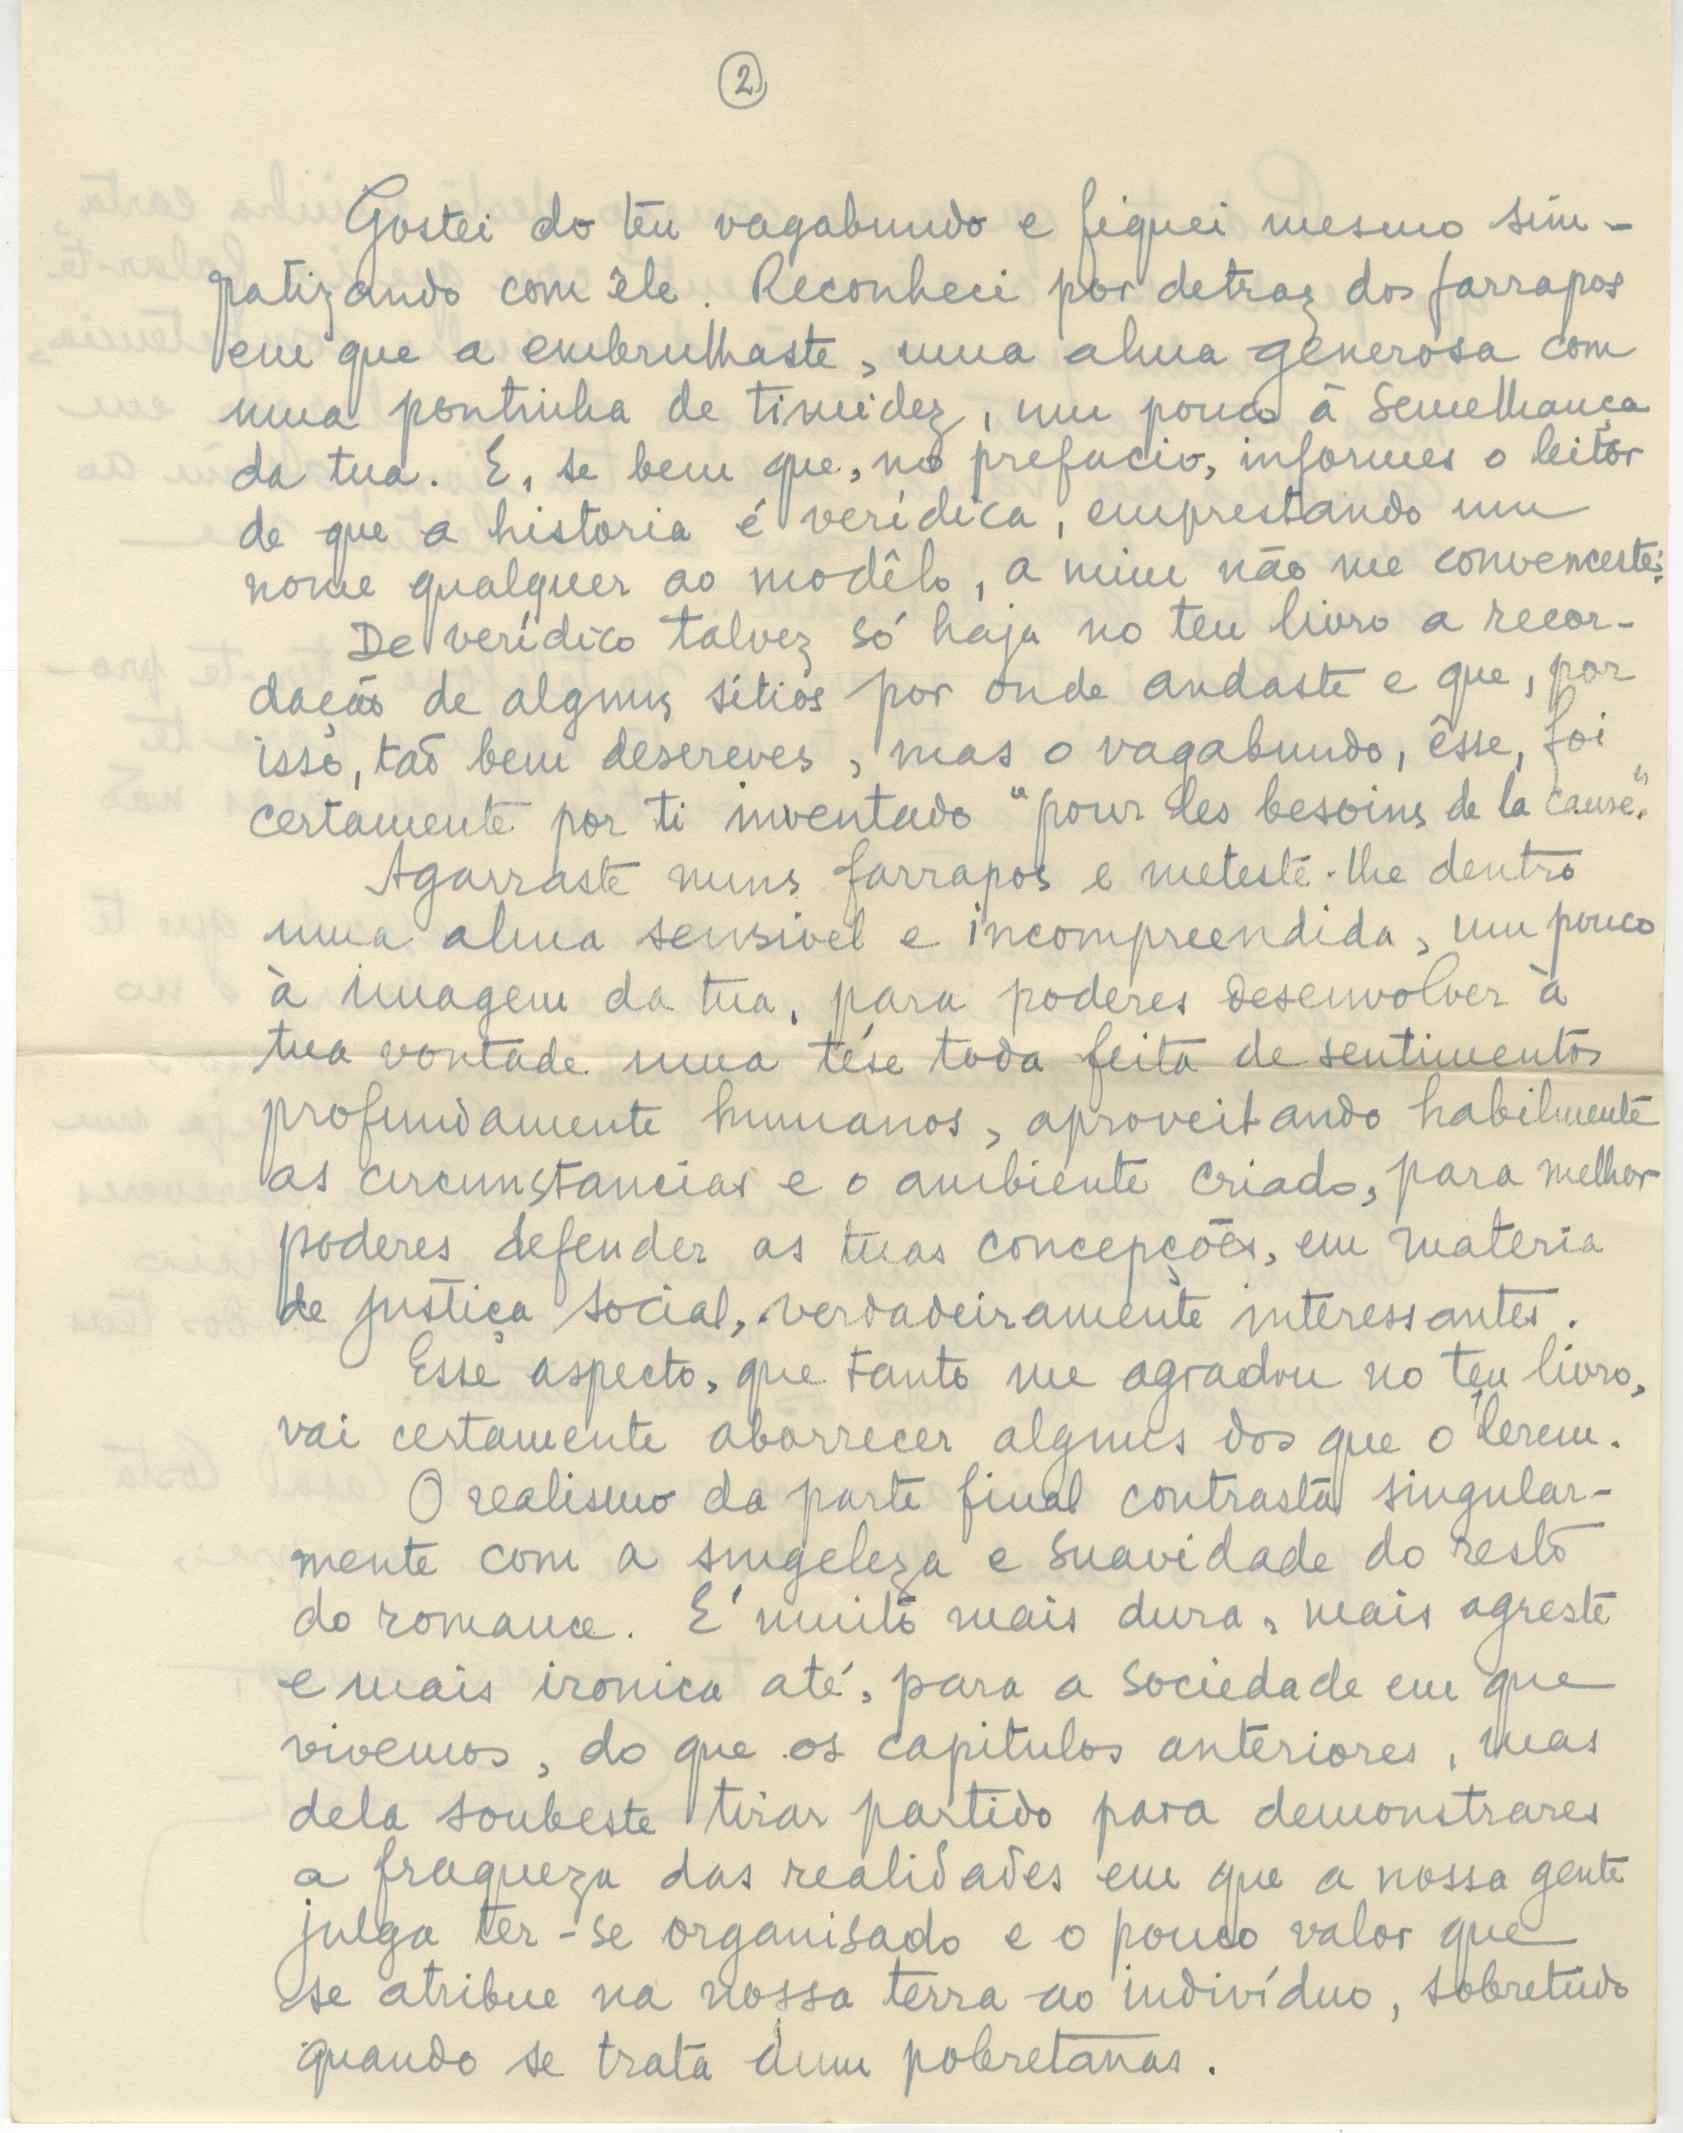 2
Gostei do teu vagabundo e fiquei mesmo sim-
patizando com êle. Reconheci por detraz dos farrapos
em que a embrulhaste, uma alma generosa com
uma pontinha de timidez, um pouco à semelhança
da tua. E, se bem que, no prefacio, informes o leitor
de que a historia é verídica, emprestando um
nome qualquer ao modêlo, a mim não me convenceste:
De verídico talvez só haja no teu livro a recor-
dação de alguns sitios por onde andaste e que, por
isso, tão bem descreves, mas o vagabundo, êsse, foi
certamente por ti inventado "pour les besoins de la cause".
Agarraste nuns farrapos e meteste-lhe dentro
uma alma sensivel e incompreendida, um pouco
à imagem da tua, para poderes desenvolver à
tua vontade uma tése toda feita de sentimentos
profundamente humanos, aproveitando habilmente
as circunstancias e o ambiente criado, para melhor
poderes defender as tuas concepções, em materia
de justiça social, verdadeiramente interessantes.
Esse aspecto, que tanto me agradou no teu livro,
vai certamente aborrecer alguns dos que o lerem.
O realismo da parte final contrasta singular-
mente com a singeleza e suavidade do resto
do romance. É muito mais dura, mais agreste
e mais ironica até, para a sociedade em que
vivemos, do que os capitulos anteriores, mas
dela soubeste tirar partido para demonstrares
a fraqueza das realidades em que a nossa gente
julga ter-se organisado e o pouco valor que
se atribue na nossa terra ao indivíduo, sobretudo
quando se trata dum pobretanas.